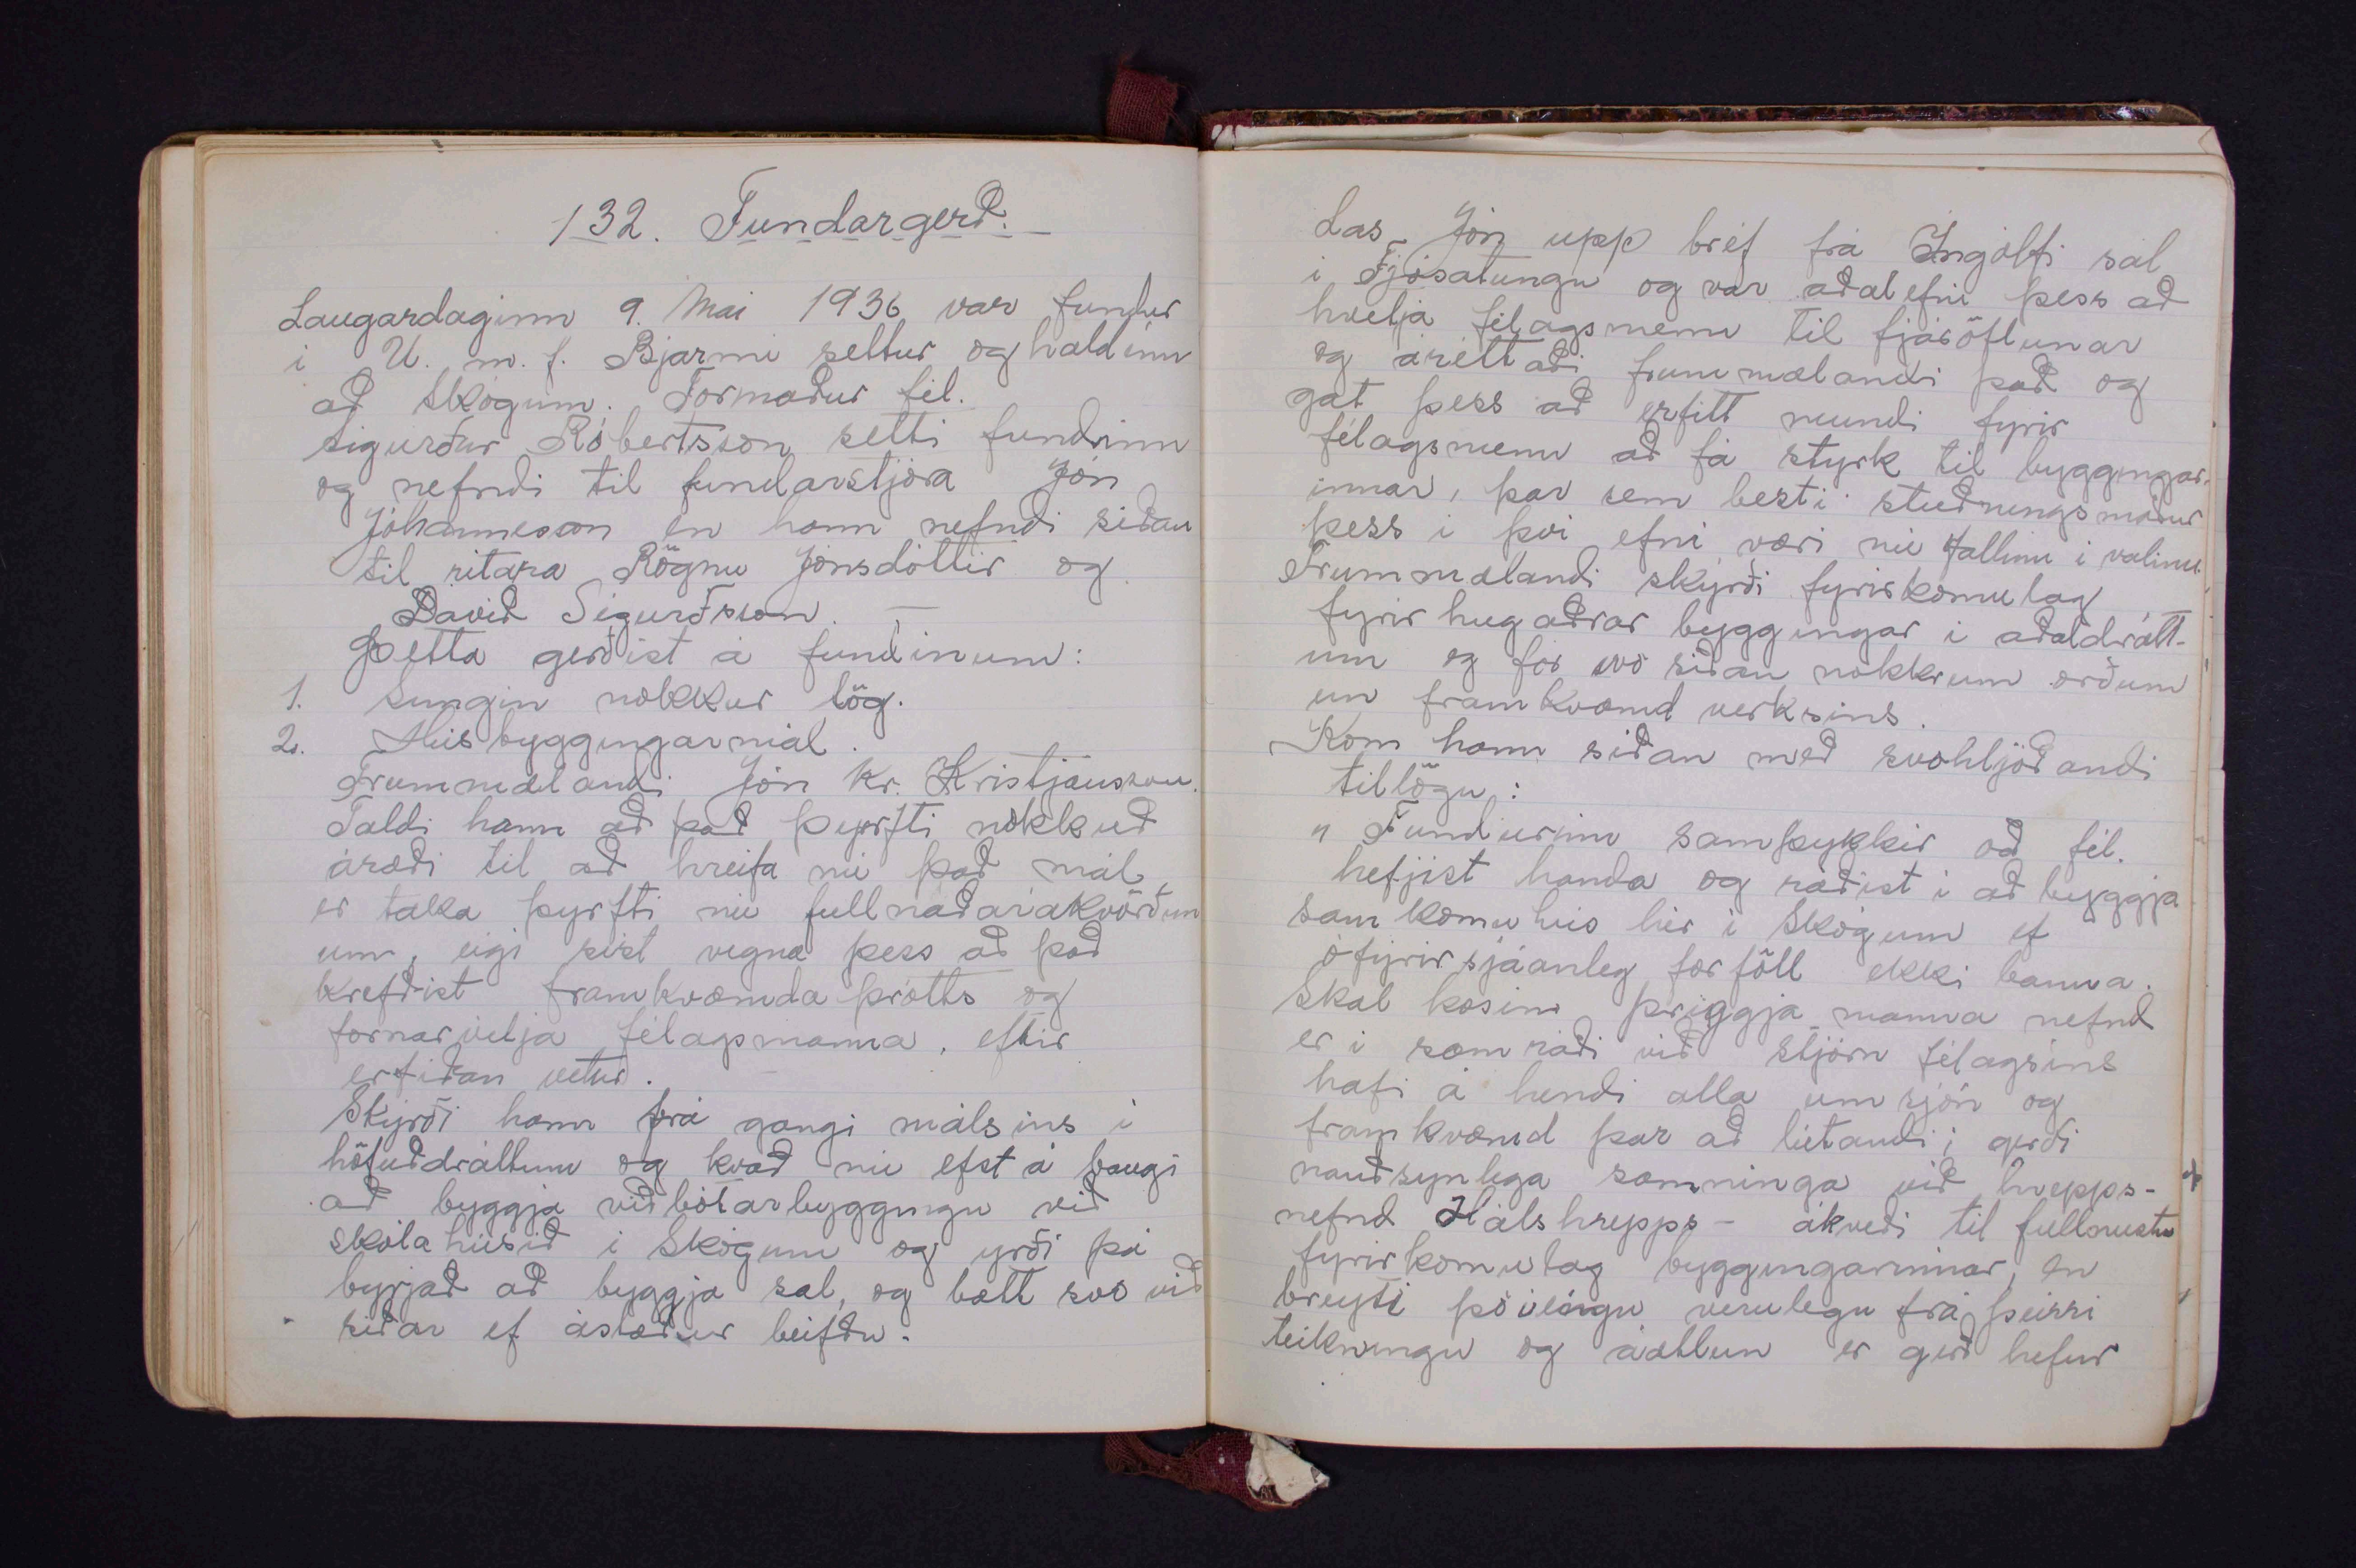 132. Fundargerð.
Laugardaginn 9. Mai 1936 var fundur
i U. m. f. Bjarmi settur og haldinn
að Skógum. Formaður fél.
Sigurður Róbertsson setti fundinn
og nefndi til fundarstjóra Jón
Jóhannesson en hann nefndi síðan
til ritara Rögnu Jónsdóttir og
Davið Sigurðsson. —
Þetta gerðist á fundinum:
1. Sungin nokkur lög.
2. Húsbyggingarmál.
Frummælandi Jón Kr. Kristjánsson.
Taldi hann að það þyrfti nokkuð
áræði til að hreifa nú það mál,
er taka þyrfti nú fullnaðarákvörðun
um, eigi síst vegna þess að það
krefðist framkvæmda þrótts og
fórnarvilja félagsmanna, eftir
erfiðan vetur.
Skýrði hann frá gangi málsins i
höfuðdráttum og kvað nú efst á baugi
að byggja viðbótarbyggingu við
skólahúsið i Skógum og yrði þá
byrjað að byggja sal, og bætt svo við
síðar ef ástæður leifðu.
Las Jón upp bréf frá Ingólfi sál
i Fjósatungu og var aðalefni þess að
hvetja félagsmenn til fjáröflunar
og áréttaði frummælandi það og
gat þess að erfitt mundi fyrir
félagsmenn að fá styrk til byggingar-
innar, þar sem besti stuðningsmaður
þess i þvi efni væri nú fallinn i valinn.
Frummælandi skýrði fyrirkomulag
fyrirhugaðrar byggingar i aðaldrátt-
um og fór svo síðan nokkrum orðum
um framkvæmd verksins.
Kom hann síðan með svohljóðandi
tillögu:
" Fundurinn samþykkir að fél.
hefjist handa og ráðist i að byggja
samkomuhús hér i Skógum ef
ófyrirsjáanleg forföll ekki banna.
Skal kosin þriggja manna nefnd
er i samráði við stjórn félagsins
hafi á hendi alla umsjón og
framkvæmd þar að lútandi; gerði
nauðsynlega samninga við hrepps-
nefnd Hálshrepps - ákveði til fullnustu
fyrirkomulag byggingarinnar, en
breyti þó i engu verulegu frá þeirri
teikningu og áætlun er gerð hefur